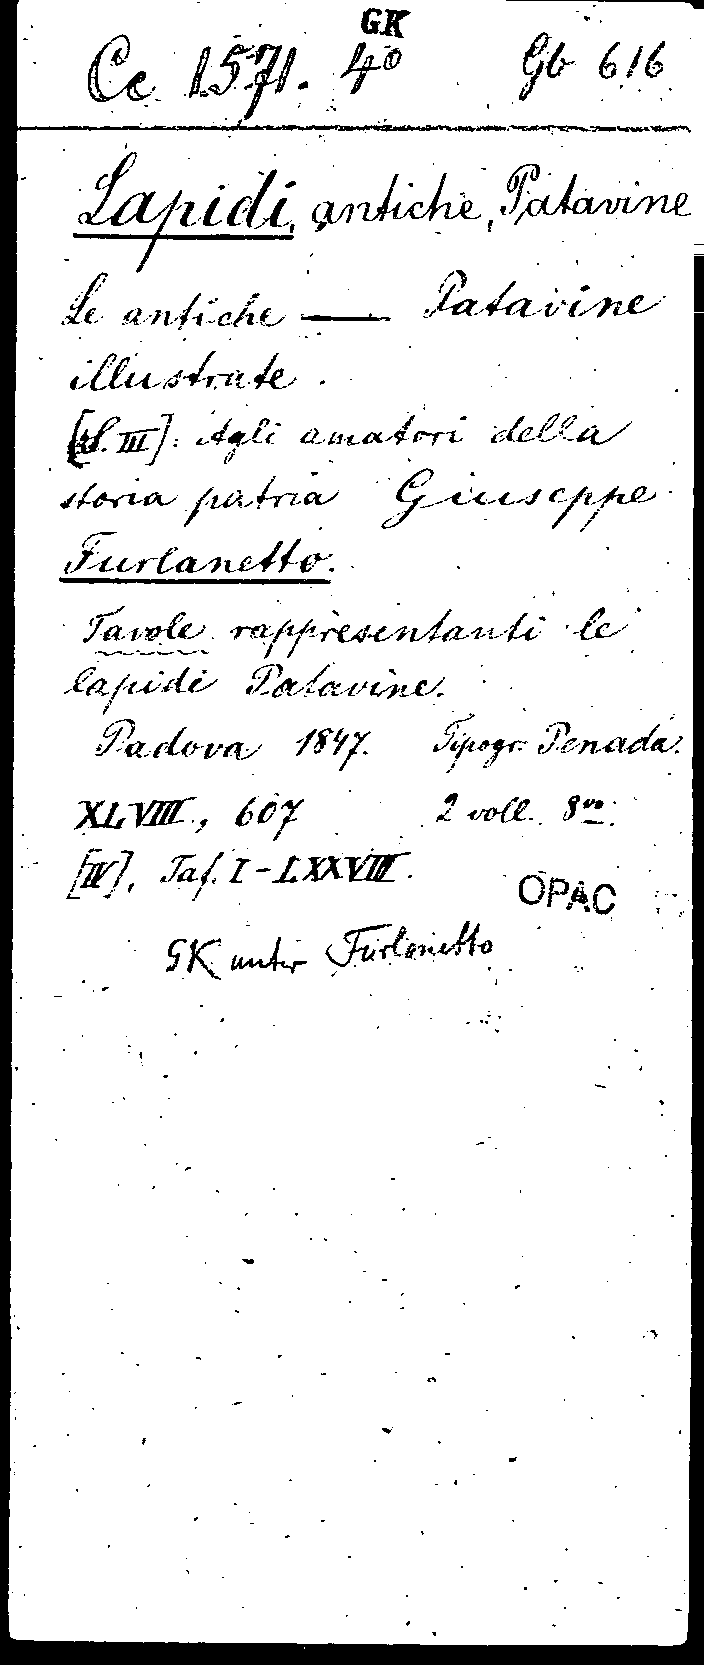 GK
Cc 1571. 4° Gb 616
Lapidi, antiche, Patavine
Le antiche — Patavine
illustrate.
[S. III]: Agli amatori della
storia patria Giuseppe
Furlanetto.
Tavole rappresentanti le
lapidi Patavine.
Padova 1847. Tipogr. Penada.
XLVIII, 607 2 voll. 8vo.
[IV], Taf. I-LXXVIII.
OPAC
GK unter Furlanetto